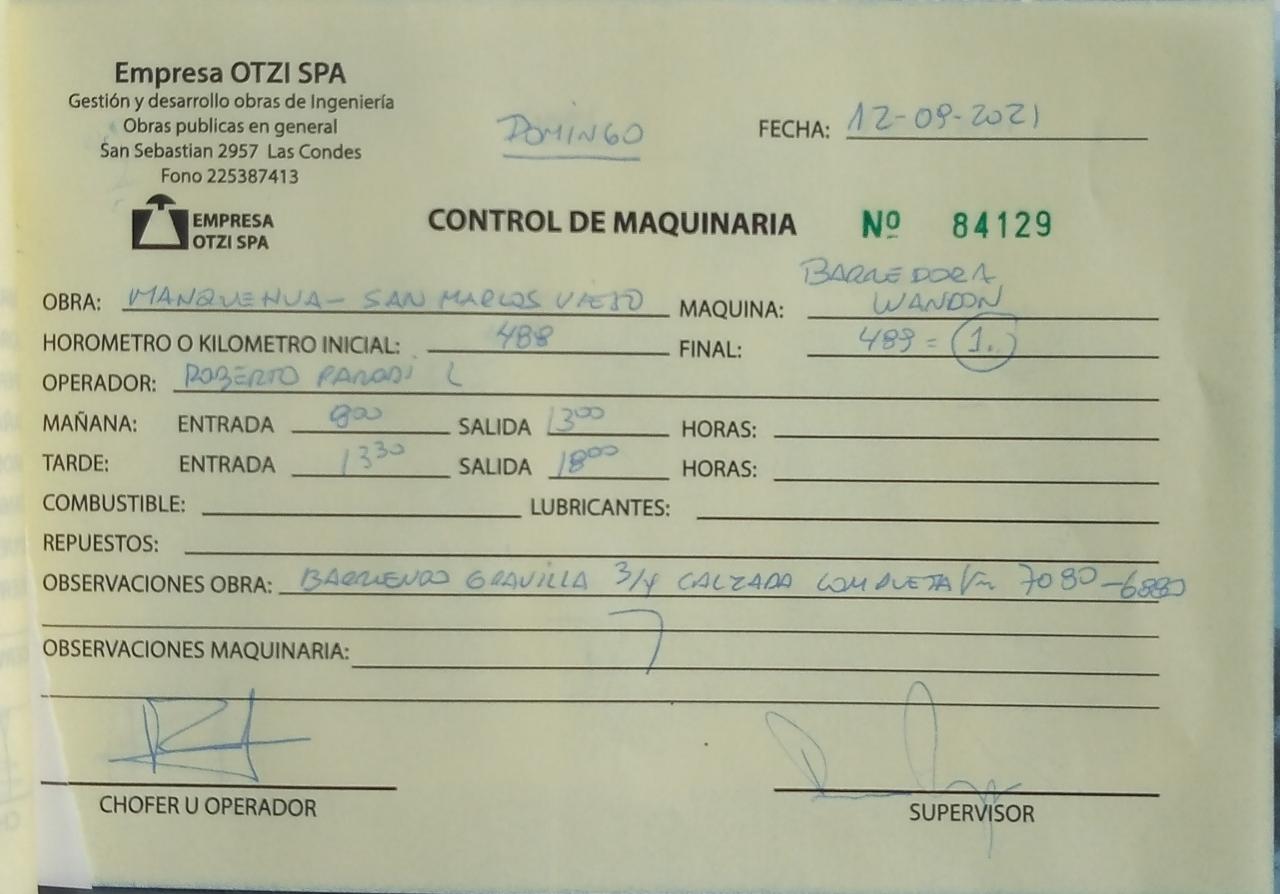 Empresa OTZI SPA
Gestión y desarrollo obras de Ingeniería
Obras publicas en general
San Sebastian 2957 Las Condes
Fono 225387413
EMPRESA
OTZI SPA
DOMINGO
FECHA: 12-09-2021
CONTROL DE MAQUINARIA Nº 84129
OBRA: MANQUEHUA - SAN MARCOS VIEJO MAQUINA: BARREDORA
WANDON
HOROMETRO O KILOMETRO INICIAL: 488 FINAL: 489 = 1.
OPERADOR: ROBERTO PARODI L
MAÑANA: ENTRADA 800 SALIDA 1300 HORAS:
TARDE: ENTRADA 1330 SALIDA 1800 HORAS:
COMBUSTIBLE: LUBRICANTES:
REPUESTOS:
OBSERVACIONES OBRA: BARRIENDO GRAVILLA 3/4 CALZADA COMPLETA Km 7080-6880
OBSERVACIONES MAQUINARIA:
CHOFER U OPERADOR
SUPERVISOR